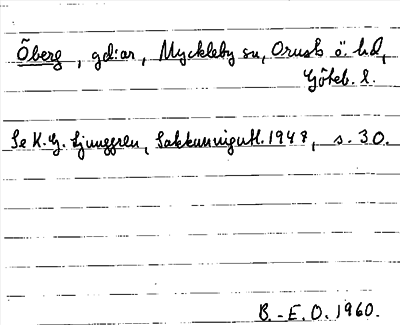 Öberg, gd:ar, Myckleby sn, Orusts ö. hd,
Göteb. l.
Se K. G. Ljunggren, Sakkunnigutl. 1948, s. 30.
B.-E. O. 1960.